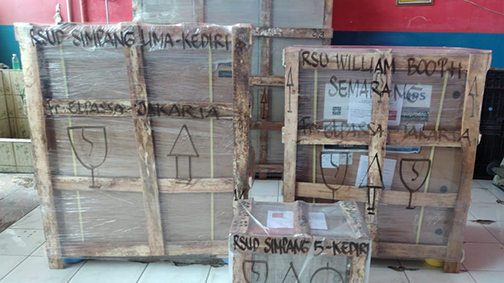 RSUP SIMPANG LIMA-KEDIRI
Fr. ELPASSA-JAKARTA
RSU WILLIAM BOOTH
SEMARANG
Fr. ELPASSA-JAKARTA
RSUP SIMPANG 5-KEDIRI